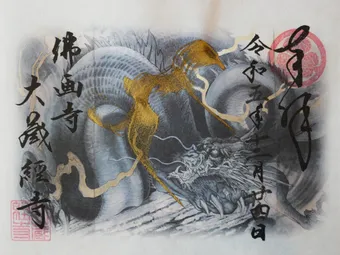 奉拝
令和五年十一月廿四日
佛画寺
大蔵経寺